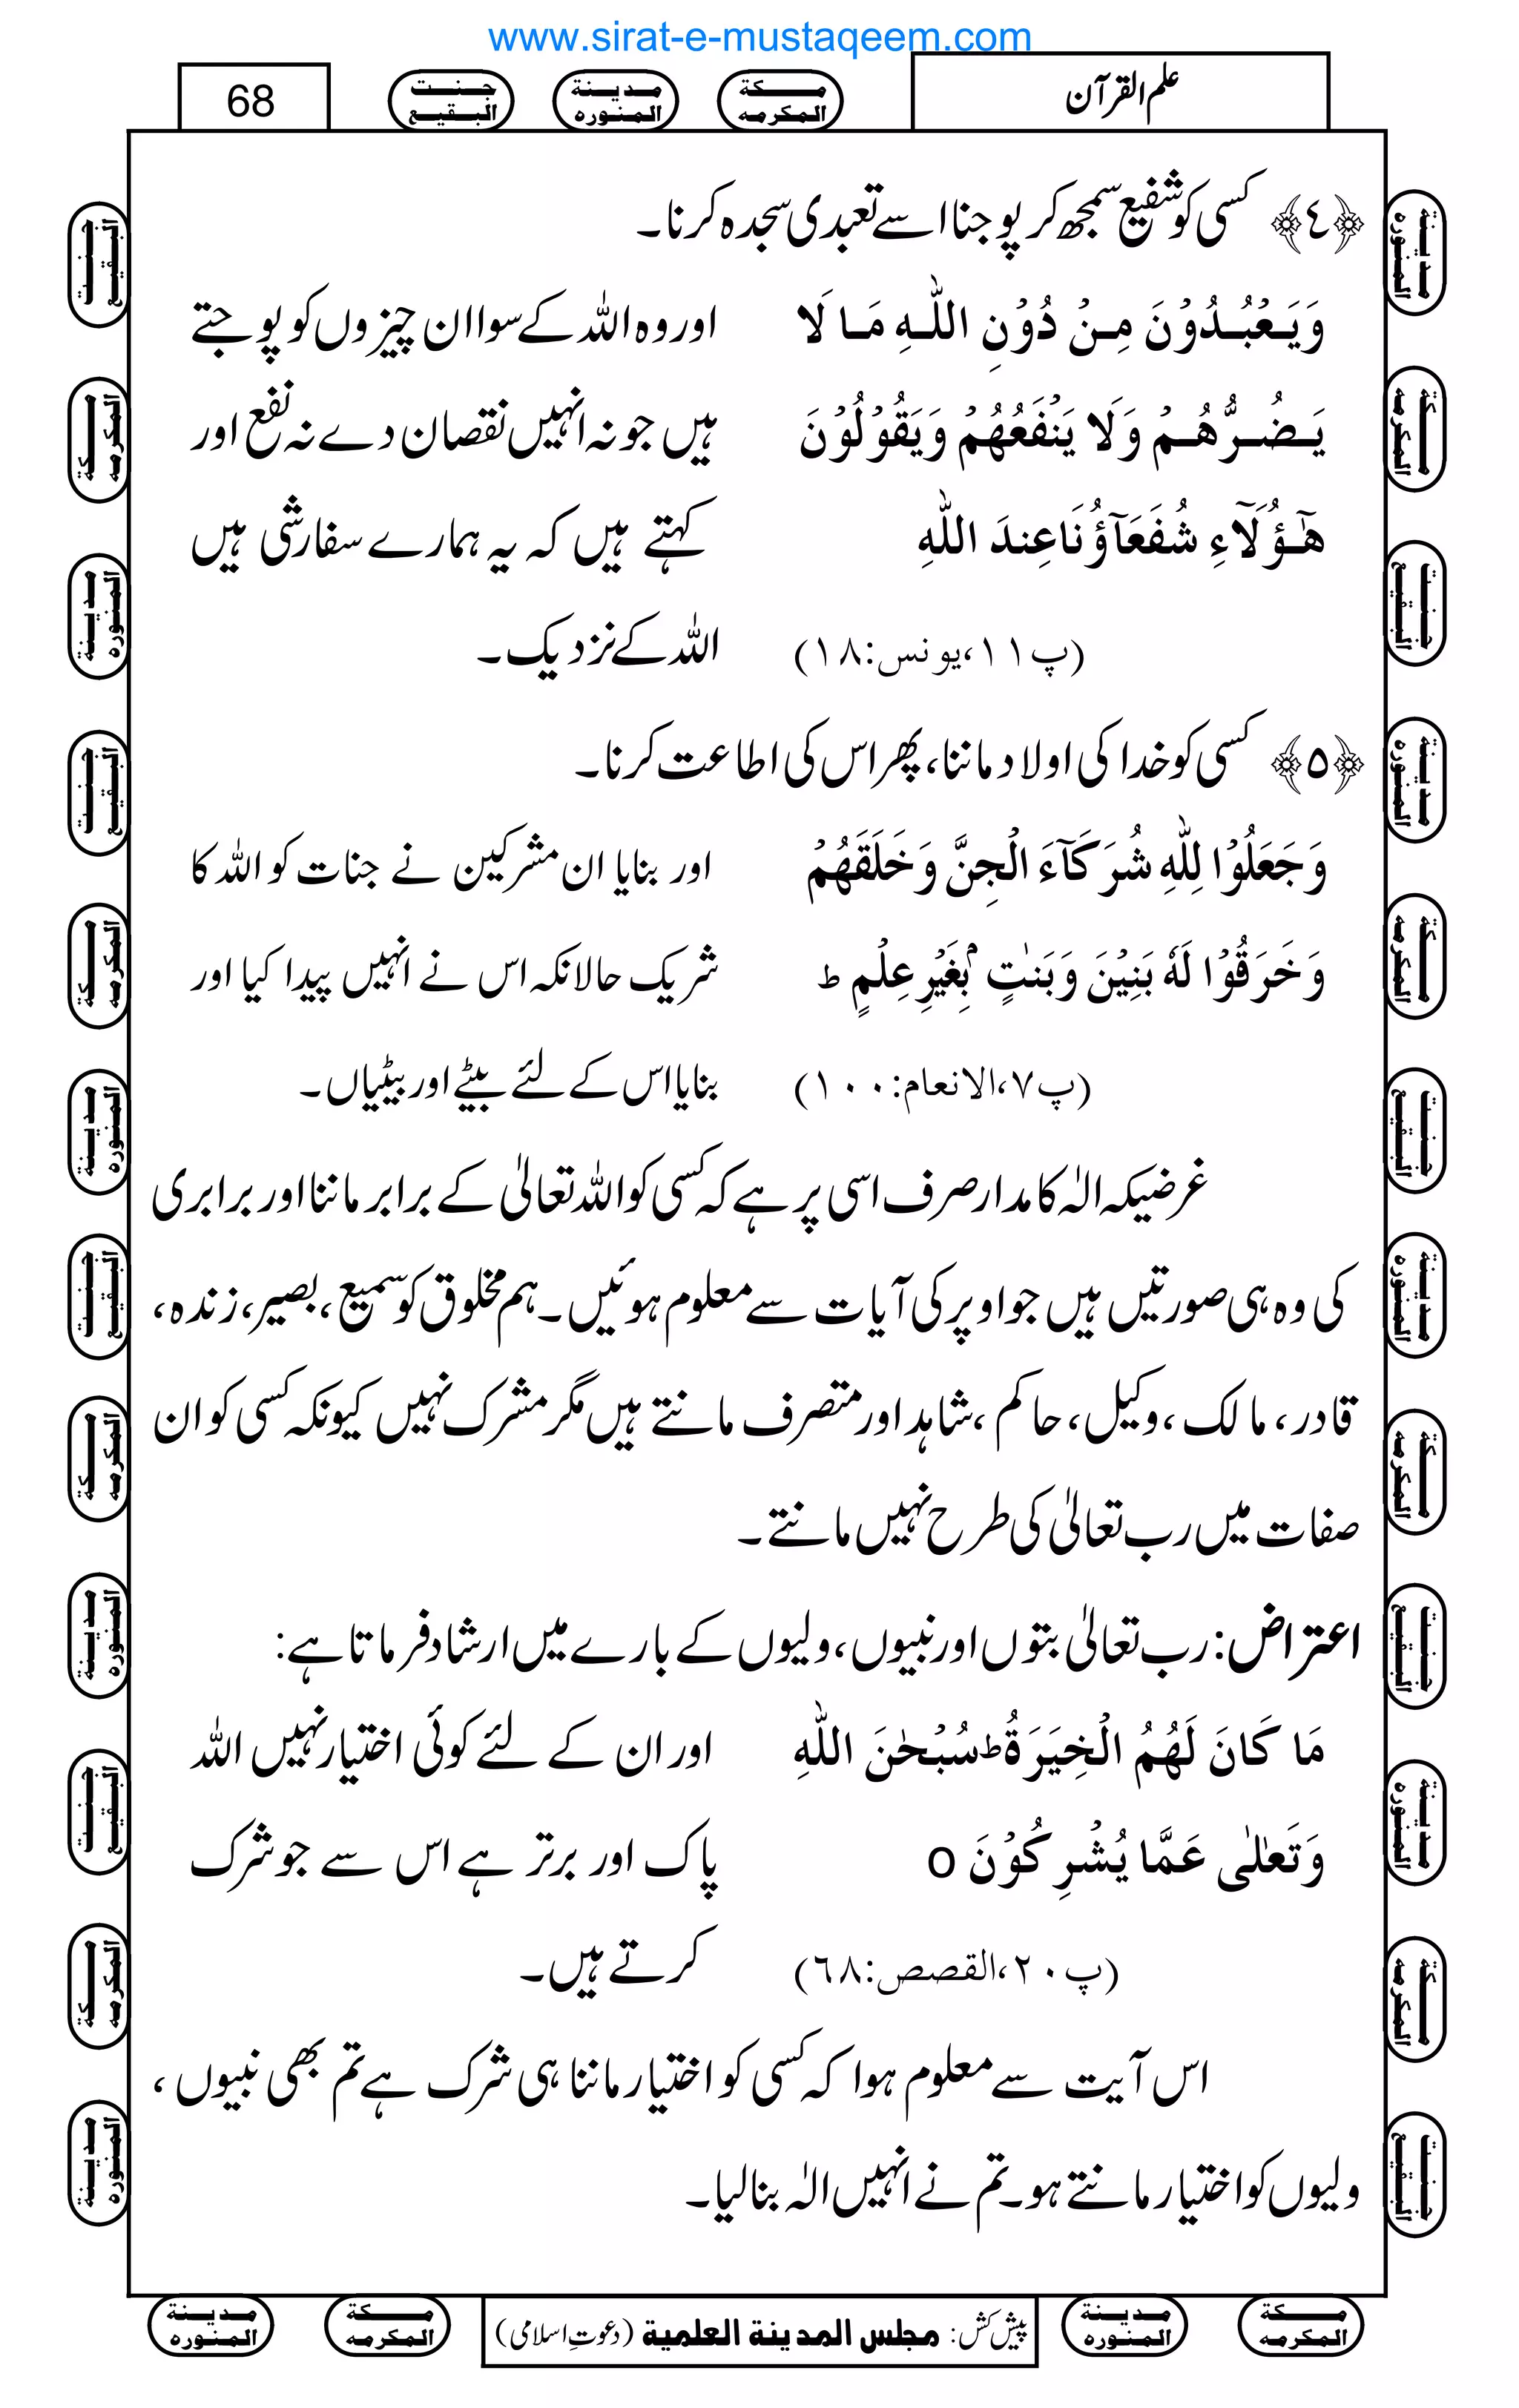 www.sirat-e-mustaqeem.com
علم القرآن
مكة المكرمه
مدينة المنوره
جنت البقيع
68
﴿٤﴾ کسی کو شفیع سمجھ کر پوجنا اسے تعبدی سجدہ کرنا۔
وَيَعْبُدُوْنَ مِنْ دُوْنِ اللّٰهِ مَا لَا
اور وہ اللہ کے سوا ان چیزوں کو پوجتے
يَضُرُّهُمْ وَلَا يَنْفَعُهُمْ وَيَقُوْلُوْنَ
ہیں جو نہ انہیں نقصان دے نہ نفع اور
هٰٓؤُلَآءِ شُفَعَآؤُنَا عِندَ اللّٰهِ
کہتے ہیں کہ یہ ہمارے سفارشی ہیں
(پ۱۱،یونس:۱۸)
اللہ کے نزدیک۔
﴿٥﴾ کسی کو خدا کی اولاد ماننا، پھر اس کی اطاعت کرنا۔
وَجَعَلُوْا لِلّٰهِ شُرَكَآءَ الْجِنَّ وَخَلَقَهُمْ
اور بنایا ان مشرکین نے جنات کو اللہ کا
وَخَرَقُوْا لَهٗ بَنِيْنَ وَبَنٰتٍ ۢ بِغَيْرِعِلْمٍ ط
شریک حالانکہ اس نے انہیں پیدا کیا اور
(پ۷،الانعام:۱۰۰)
بنایا اس کے لئے بیٹے اور بیٹیاں۔
غرضیکہ الٰہ کا مدار صرف اسی پر ہے کہ کسی کو اللہ تعالیٰ کے برابر ماننا اور برابری
کی وہ ہی صورتیں ہیں جو اوپر کی آیات سے معلوم ہوئیں۔ ہم مخلوق کو سمیع، بصیر، زندہ،
قادر، مالک، وکیل، حاکم، شاہد اور متصرف مانتے ہیں مگر مشرک نہیں کیونکہ کسی کو ان
صفات میں رب تعالیٰ کی طرح نہیں مانتے۔
اعتراض: رب تعالیٰ بتوں اور نبیوں، ولیوں کے بارے میں ارشاد فرماتا ہے:
مَا كَانَ لَهُمُ الْخِيَرَةُ ط سُبْحٰنَ اللّٰهِ
اور ان کے لئے کوئی اختیار نہیں اللہ
وَتَعٰلٰى عَمَّا يُشْرِكُوْنَ o
پاک اور برتر ہے اس سے جو شرک
(پ۲۰،القصص:٦۸)
کرتے ہیں۔
اس آیت سے معلوم ہوا کہ کسی کو اختیار ماننا ہی شرک ہے تم بھی نبیوں،
ولیوں کو اختیار مانتے ہو۔ تم نے انہیں الٰہ بنالیا۔
مكة المكرمه
مدينة المنوره
پیش کش: مجلس المدینة العلمیة (دعوتِ اسلامی)
مكة المكرمه
مدينة المنوره